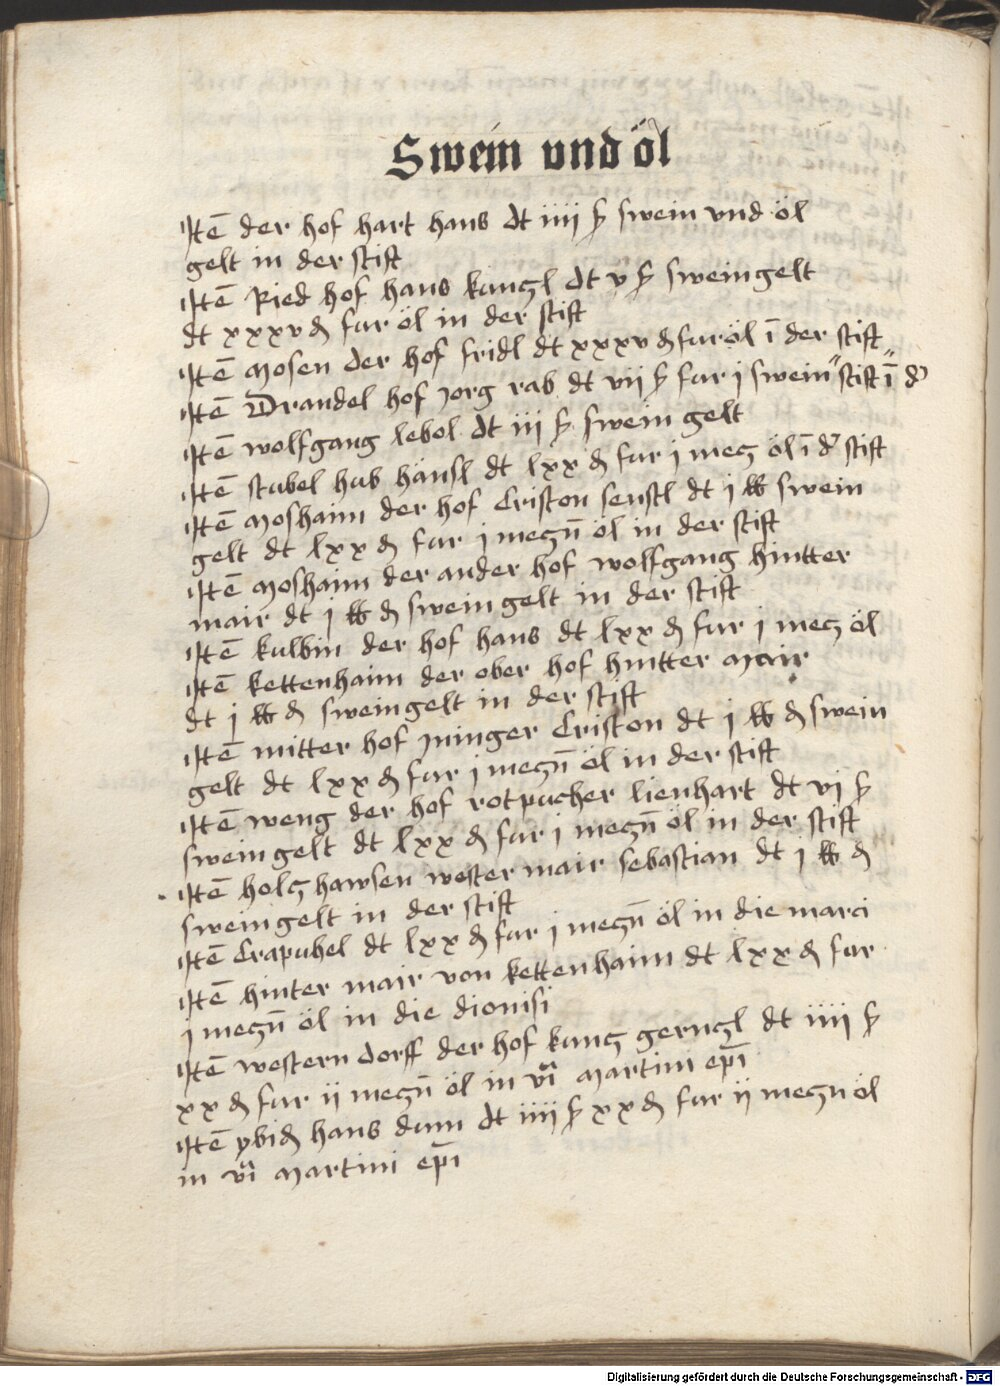 Swein vnd öl
Itē der hof hart hans dt iiii ß swein vnd öl
gelt in der stift
Itē Ried hof hans kanczl dt v ß sweingelt
dt xxxv ₰ fur öl in der stift
Itē Mosen der hof fridl dt xxxv ₰ fur öl ī der stift
Itē Drandel hof Jorg rab dt vii ß fur j swein "stift ī d'"
Itē wolfgang lebol dt iii ß swein gelt
Itē stubel hub hänsl dt lxx ₰ fur j mecz öl ī d' stift
Itē Moshaim der hof Criston senstl dt j ℔ swein
gelt dt lxx ₰ fur j meczn̄ öl in der stift
Itē Moshaim der ander hof wolfgang hintter
mair dt j ℔ ₰ swein gelt in der stift
Itē kulbin der hof hans dt lxx ₰ fur j mecz öl
Itē kettenhaim der ober hof hintter Mair
dt j ℔ ₰ sweingelt in der stift
Itē mitter hof Minger Criston dt j ℔ ₰ swein
gelt dt lxx ₰ fur j meczn̄ öl in der stift
Itē weng der hof rotpucher lienhart dt vi ß
swein gelt dt lxx ₰ fur j meczn̄ öl in der stift
Itē holczhawsen wester mair sebastian dt j ℔ ₰
sweingelt in der stift
Itē Crapuhel dt lxx ₰ fur j meczn̄ öl in die marci
Itē hinter mair von kettenhaim dt lxx ₰ fur
j meczn̄ öl in die dionisi
Itē western dorff der hof kancz gerngl dt iiii ß
xx ₰ fur ij meczn̄ öl in vī Martini ep̄i
Itē ybi₰ hans dum dt iiii ß xx ₰ fur ij meczn öl
in vī Martini ep̄i
Digitalisierung gefördert durch die Deutsche Forschungsgemeinschaft - DFG